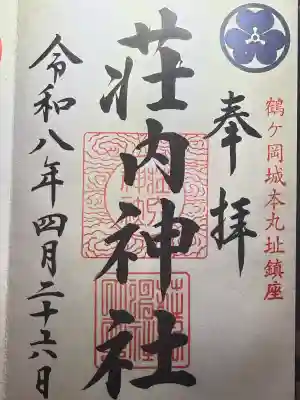 鶴ヶ岡城本丸址鎮座
奉拝
荘内神社
令和八年四月二十六日